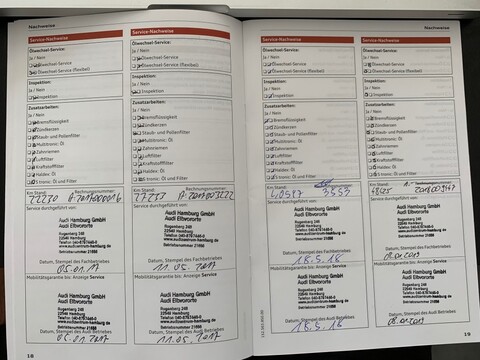 Nachweise
Service-Nachweise
Ölwechsel-Service:
Ja / Nein
Ölwechsel-Service
Ölwechsel-Service (flexibel)
Inspektion:
Ja / Nein
Inspektion
Zusatzarbeiten:
Ja / Nein
Bremsflüssigkeit
Zündkerzen
Staub- und Pollenfilter
Multitronic: Öl
Zahnriemen
Luftfilter
Kraftstofffilter
Haldex: Öl
S tronic: Öl und Filter
Km Stand: Rechnungsnummer:
22270
Service durchgeführt von:
Audi Hamburg GmbH
Audi Elbvororte
Rugenbarg 248
22549 Hamburg
Betriebsnummer 21888
Datum, Stempel des Fachbetriebes
05.01.17
Mobilitätsgarantie bis: Anzeige Service
Audi Hamburg GmbH
Audi Elbvororte
Rugenbarg 248
22549 Hamburg
Betriebsnummer 21888
Datum, Stempel des Audi Betriebes
05.01.17
18
Service-Nachweise
Ölwechsel-Service:
Ja / Nein
Ölwechsel-Service
Ölwechsel-Service (flexibel)
Inspektion:
Ja / Nein
Inspektion
Zusatzarbeiten:
Ja / Nein
Bremsflüssigkeit
Zündkerzen
Staub- und Pollenfilter
Multitronic: Öl
Zahnriemen
Luftfilter
Kraftstofffilter
Haldex: Öl
S tronic: Öl und Filter
Km Stand: Rechnungsnummer:
Service durchgeführt von:
Audi Hamburg GmbH
Audi Elbvororte
Rugenbarg 248
22549 Hamburg
Betriebsnummer 21888
Datum, Stempel des Fachbetriebes
11.05.2017
Mobilitätsgarantie bis: Anzeige Service
Audi Hamburg GmbH
Audi Elbvororte
Rugenbarg 248
22549 Hamburg
Betriebsnummer 21888
Datum, Stempel des Audi Betriebes
11.05.2017
Nachweise
Service-Nachweise
Ölwechsel-Service:
Ja / Nein
Ölwechsel-Service
Ölwechsel-Service (flexibel)
Inspektion:
Ja / Nein
Inspektion
Zusatzarbeiten:
Ja / Nein
Bremsflüssigkeit
Zündkerzen
Staub- und Pollenfilter
Multitronic: Öl
Zahnriemen
Luftfilter
Kraftstofffilter
Haldex: Öl
S tronic: Öl und Filter
Km Stand:
40517 3553
Service durchgeführt von:
Audi Hamburg GmbH
Audi Elbvororte
Rugenbarg 248
22549 Hamburg
Betriebsnummer 21888
Datum, Stempel des Fachbetriebes
18.5.18
Mobilitätsgarantie bis: Anzeige Service
Audi Hamburg GmbH
Audi Elbvororte
Rugenbarg 248
22549 Hamburg
Betriebsnummer 21888
Datum, Stempel des Audi Betriebes
18.5.18
Service-Nachweise
Ölwechsel-Service:
Ja / Nein
Ölwechsel-Service
Ölwechsel-Service (flexibel)
Inspektion:
Ja / Nein
Inspektion
Zusatzarbeiten:
Ja / Nein
Bremsflüssigkeit
Zündkerzen
Staub- und Pollenfilter
Multitronic: Öl
Zahnriemen
Luftfilter
Kraftstofffilter
Haldex: Öl
S tronic: Öl und Filter
Km Stand:
Service durchgeführt von:
Audi Hamburg GmbH
Audi Elbvororte
Rugenbarg 248
22549 Hamburg
Betriebsnummer 21888
Datum, Stempel des Fachbetriebes
Mobilitätsgarantie bis: Anzeige Service
Audi Hamburg GmbH
Audi Elbvororte
Rugenbarg 248
22549 Hamburg
Betriebsnummer 21888
Datum, Stempel des Audi Betriebes
19